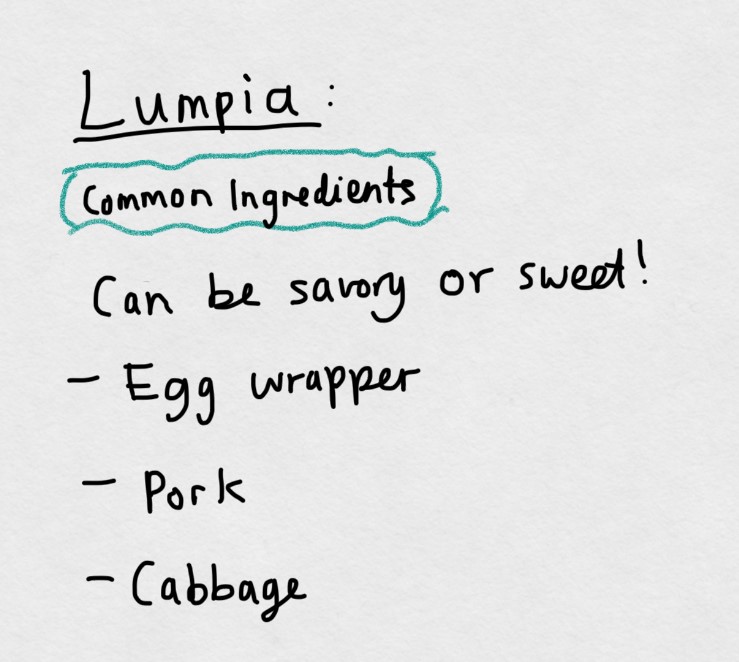 Lumpia:
Common Ingredients
Can be savory or sweet!
- Egg wrapper
- Pork
- Cabbage